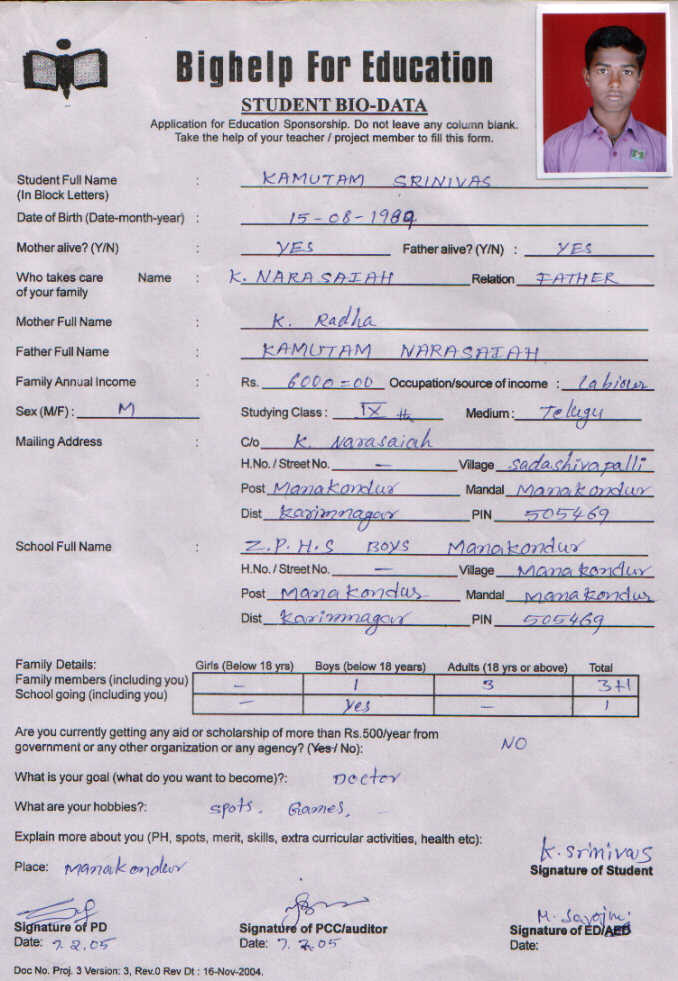 Bighelp For Education
STUDENT BIO-DATA
Application for Education Sponsorship. Do not leave any column blank.
Take the help of your teacher / project member to fill this form.
Student Full Name : KAMUTAM SRINIVAS
(In Block Letters)
Date of Birth (Date-month-year) : 15-08-1989
Mother alive? (Y/N) : YES Father alive? (Y/N) : YES
Who takes care Name : K. NARASAIAH Relation FATHER
of your family
Mother Full Name : K. Radha
Father Full Name : KAMUTAM NARASAIAH
Family Annual Income : Rs. 6000=00 Occupation/source of income : Labiour
Sex (M/F) : M Studying Class : IX th Medium : Telugu
Mailing Address : C/o K. Narasaiah
H.No. / Street No. - Village sadashivapalli
Post Manakondur Mandal Manakondur
Dist Karimnagar PIN 505469
School Full Name : Z.P.H.S BOYS Manakondur
H.No. / Street No. - Village Manakondur
Post Manakondur Mandal Manakondur
Dist Karimnagar PIN 505469
Family Details: Girls (Below 18 yrs) Boys (below 18 years) Adults (18 yrs or above) Total
Family members (including you) - 1 3 3+1
School going (including you) - Yes - 1
Are you currently getting any aid or scholarship of more than Rs.500/year from
government or any other organization or any agency? (Yes / No): NO
What is your goal (what do you want to become)?: Docter
What are your hobbies?: spots. Games, -
Explain more about you (PH, spots, merit, skills, extra curricular activities, health etc):
K. Srinivas
Place: Manakondur Signature of Student
M. Sarojini
Signature of PD Signature of PCC/auditor Signature of ED/AED
Date: 7.2.05 Date: 7.2.05 Date:
Doc No. Proj. 3 Version: 3, Rev.0 Rev Dt : 16-Nov-2004.